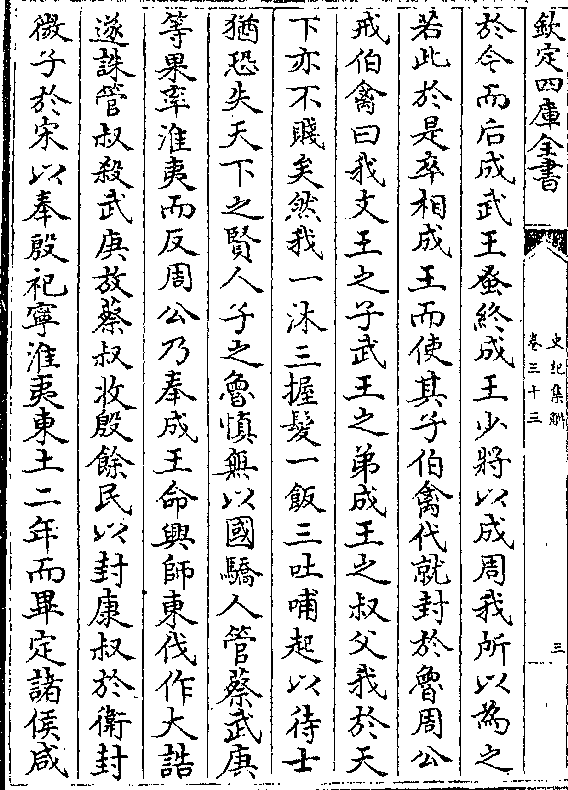 欽定四庫全書
史記集解
卷三十三
三
於今而后成武王蚤終成王少將以成周我所以為之
若此於是卒相成王而使其子伯禽代就封於魯周公
戒伯禽曰我文王之子武王之弟成王之叔父我於天
下亦不賤矣然我一沐三握髮一飯三吐哺起以待士
猶恐失天下之賢人子之魯慎無以國驕人管蔡武庚
等果率淮夷而反周公乃奉成王命興師東伐作大誥
遂誅管叔殺武庚放蔡叔收殷餘民以封康叔於衛封
微子於宋以奉殷祀寧淮夷東土二年而畢定諸侯咸